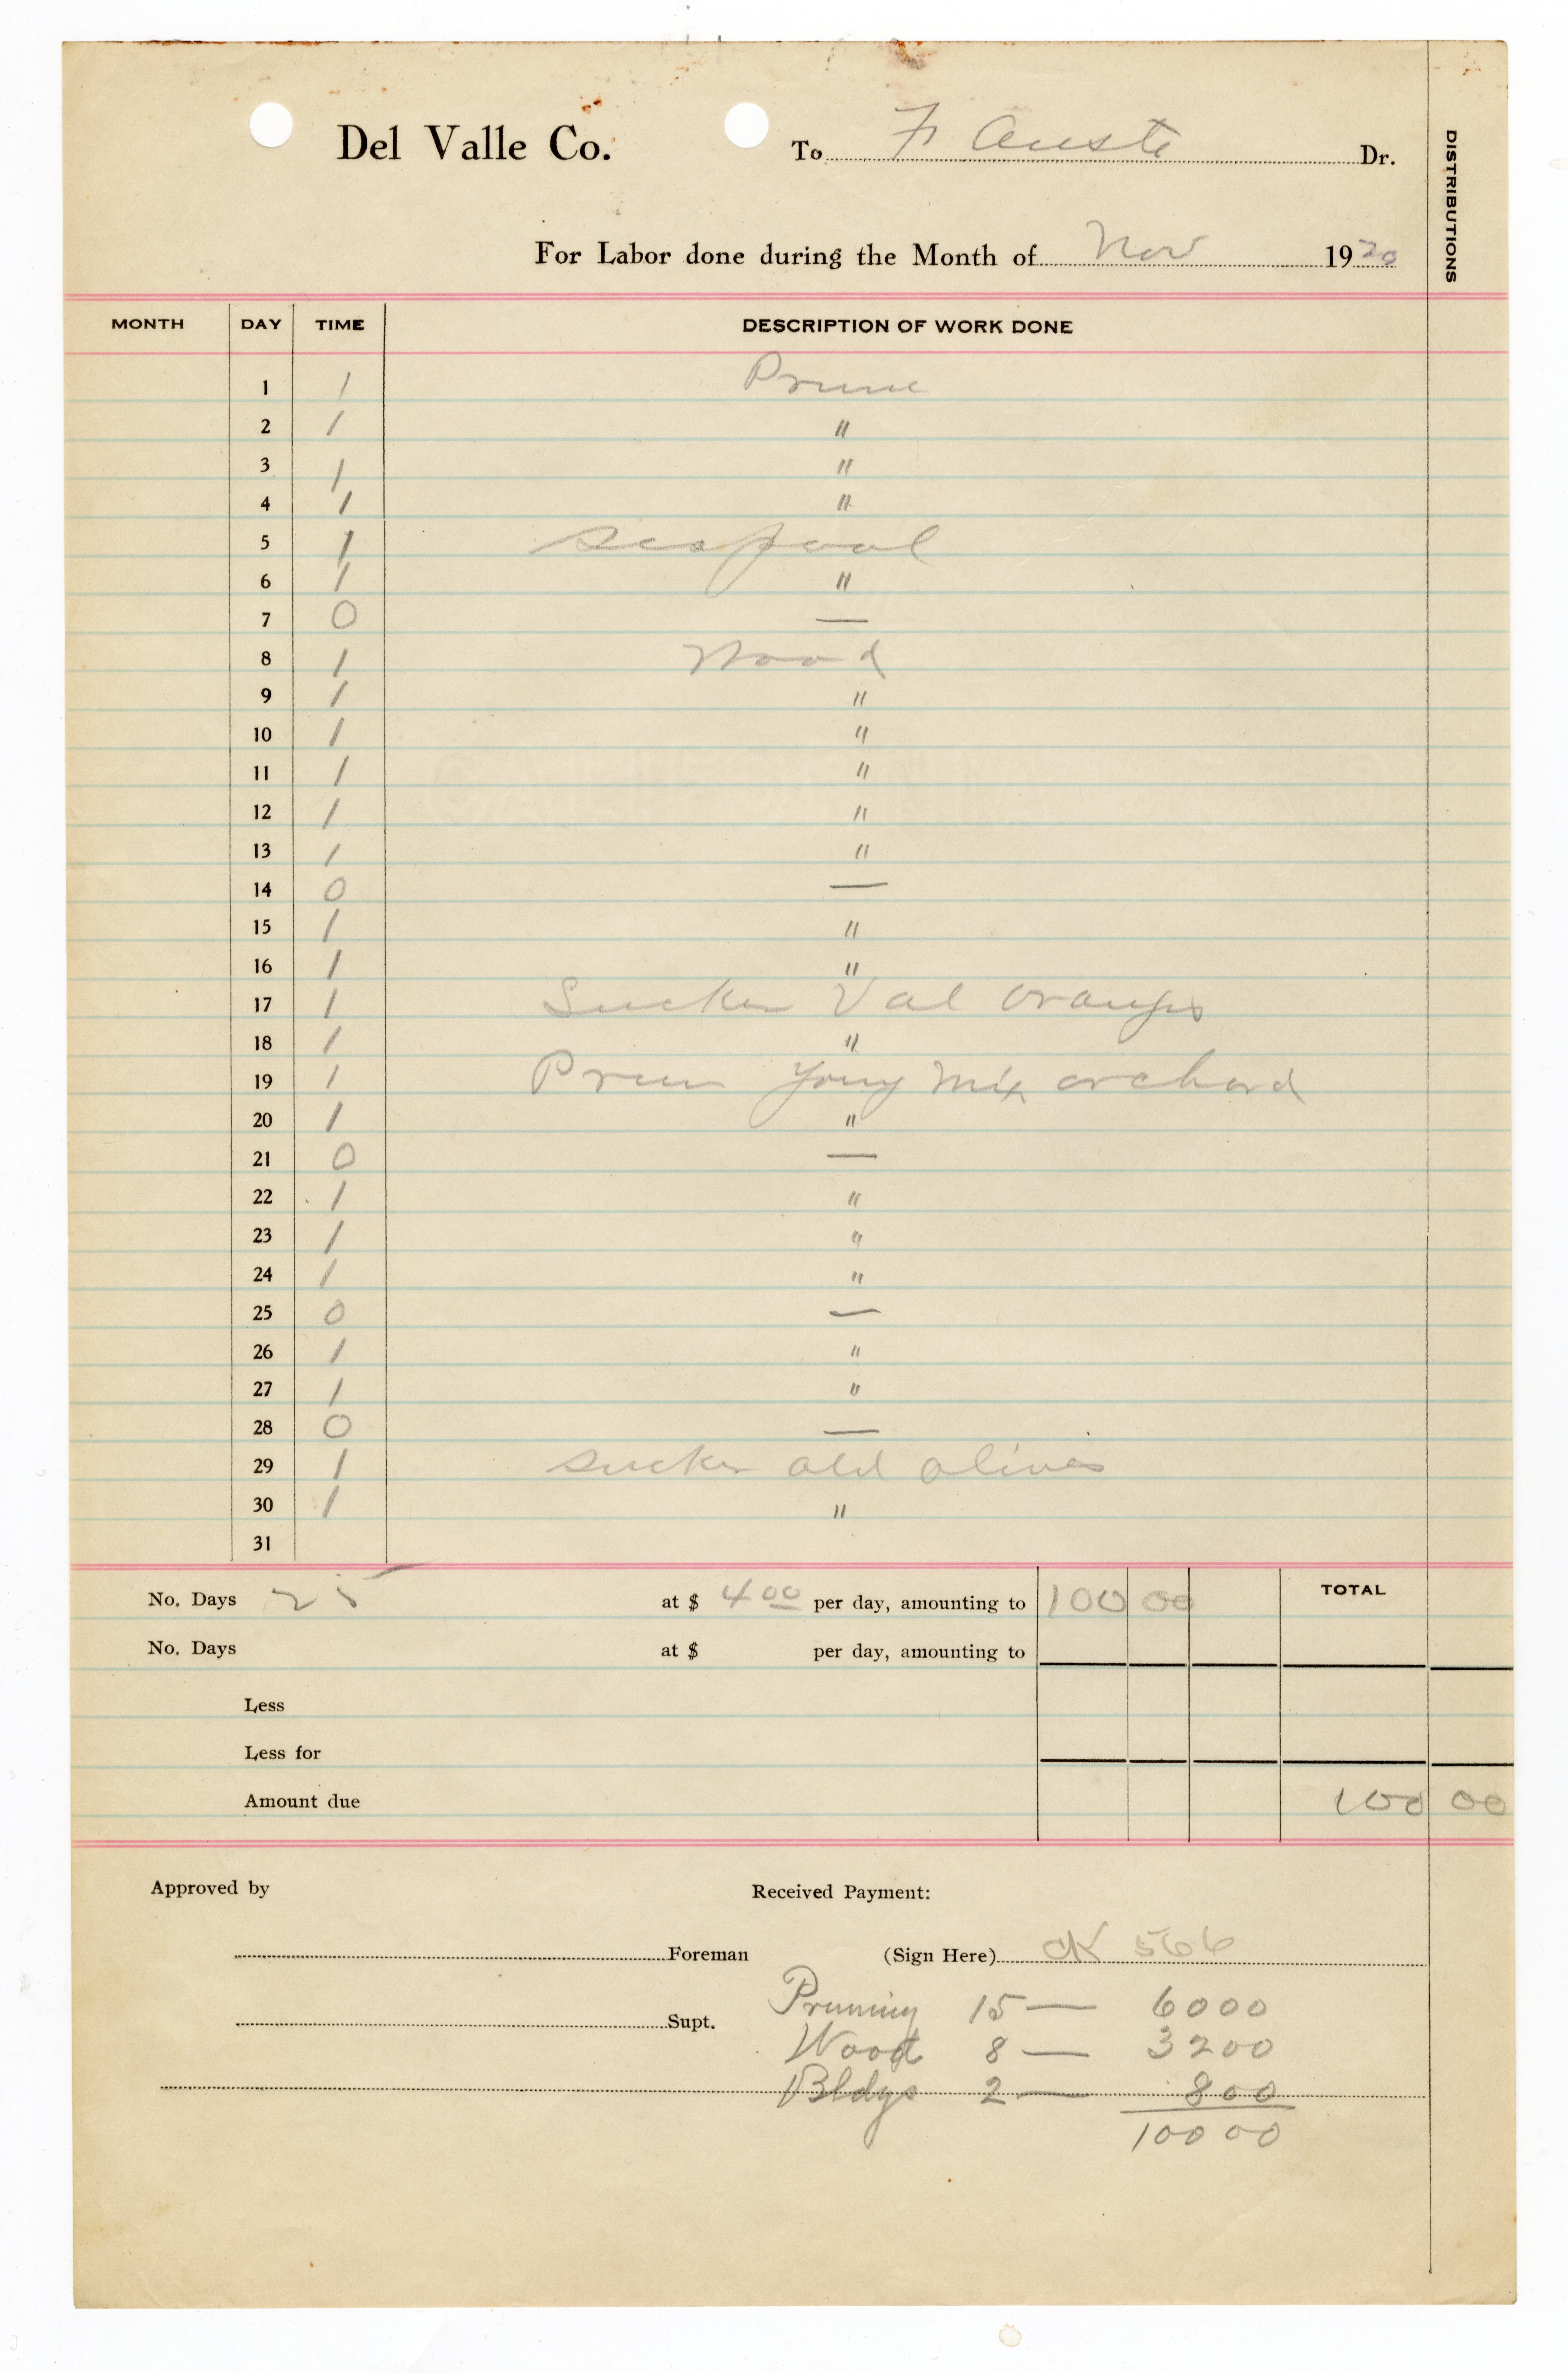 Del Valle Co. To F Auste Dr.
DISTRIBUTIONS
For Labor done during the Month of Nov 1920
MONTH DAY TIME DESCRIPTION OF WORK DONE
1 1 Prune
2 1 "
3 1 "
4 1 "
5 1 Sespool
6 1 "
7 0 —
8 1 Wood
9 1 "
10 1 "
11 1 "
12 1 "
13 1 "
14 0 —
15 1 "
16 1 "
17 1 Sucker Val oranges
18 1 "
19 1 Prun Young Mix orchard
20 1 "
21 0 —
22 1 "
23 1 "
24 1 "
25 0 —
26 1 "
27 1 "
28 0 —
29 1 sucker old olives
30 1 "
31
No. Days 25 at $ 4 00 per day, amounting to 100 00 TOTAL
No. Days at $ per day, amounting to
Less
Less for
Amount due 100 00
Approved by Received Payment:
Foreman (Sign Here) CK 566
Pruning 15 — 6000
Supt.
Wood 8 — 3200
Bldgs 2 — 800
100 00